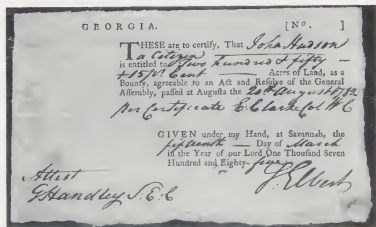 GEORGIA. [No. ]
THESE are to certify, That John Hudson
a Citizen
is entitled to Two hundred & fifty
+ 15 Pr Cent Acres of Land, as a
Bounty, agreeable to an Act and Resolve of the General
Assembly, passed at Augusta the 20th August 1782
Per Certificate E. Clarke Col
GIVEN under my Hand, at Savannah, the
fifteenth Day of March
in the Year of our Lord One Thousand Seven
Hundred and Eighty- 
Attest
G Handley S. E. C
S. Elbert